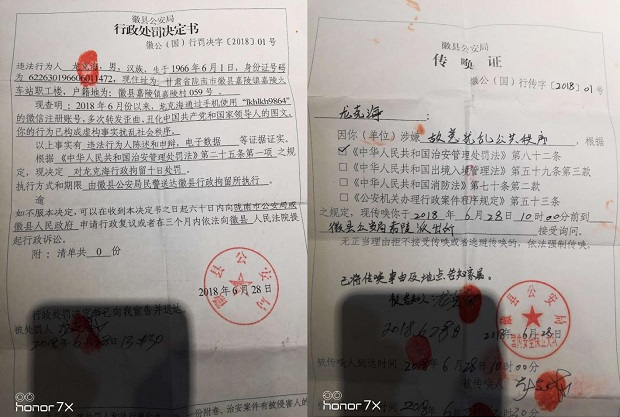 徽县公安局
行政处罚决定书
徽公（国）行罚决字〔2018〕01号
违法行为人 龙克海，男，汉族，生于1966年6月1日，身份证号码
为622630196606011472，现住址为：甘肃省陇南市徽县嘉陵镇嘉陵火
车站职工楼，户籍地为：徽县嘉陵镇嘉陵村059号。
现查明：2018年6月份以来，龙克海通过手机使用“lkhlkh9864”
的微信注册账号，多次转发歪曲、丑化中国共产党和国家领导人的图文，
你的行为已构成虚构事实扰乱社会秩序。
以上事实有 违法行为人陈述和申辩，电子数据 等证据证实。
根据 《中华人民共和国治安管理处罚法》第二十五条第一项 之规
定，现决定 对龙克海行政拘留十日处罚
执行方式和期限 由徽县公安局民警送达徽县行政拘留所执行。
逾
如不服本决定，可以在收到本决定书之日起六十日内向陇南市公安局或
徽县人民政府 申请行政复议或者在三个月内依法向徽县 人民法院提
起行政诉讼。
附：清单共 0 份
徽县公安局
2018年6月28日
行政处罚决定书已向我宣告并送达
被处罚人
2018年6月28日
一份附卷。治安案件有被侵害人的
honor 7X
徽县公安局
传唤证
徽公（国）行传字〔2018〕01号
龙克海：
因你（单位）涉嫌 故意扰乱公共秩序，根据
☑《中华人民共和国治安管理处罚法》第八十二条
□《中华人民共和国出境入境管理法》第五十九条第三款
□《中华人民共和国消防法》第七十条第二款
□《公安机关办理行政案件程序规定》第五十三条
之规定，现传唤你于2018年6月28日10时00分前到
徽县公安局嘉陵派出所 接受询问。
无正当理由拒不接受传唤或者逃避传唤的，依法强制传唤。
已将传唤事由及地点告知家属。
被告知人：
2018.6.28日
徽县公安局
2018年6月28日
被传唤人到达时间 2018年6月28日10时00分
被传唤人
2018年6月28日
honor 7X